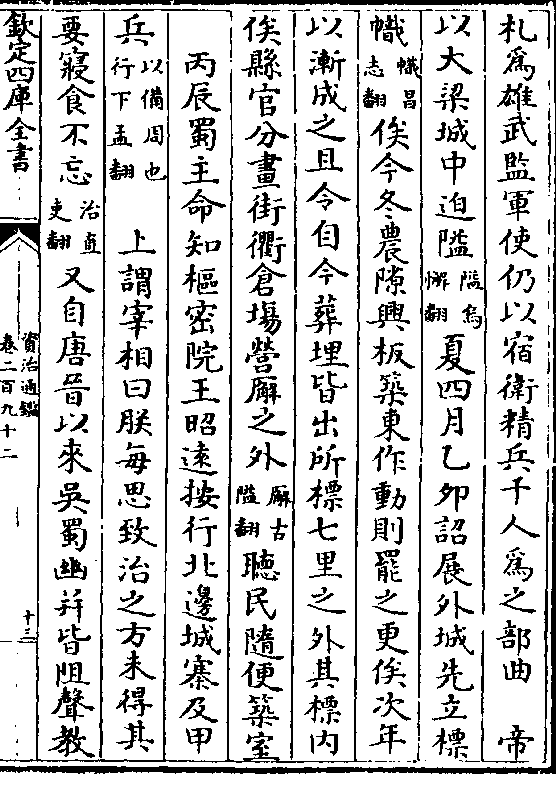 札為雄武監軍使仍以宿衛精兵千人為之部曲　帝
以大梁城中迫隘隘烏懈翻夏四月乙卯詔展外城先立標
幟幟昌志翻俟今冬農隙興板築東作動則罷之更俟次年
以漸成之且令自今葬埋皆出所標七里之外其標内
俟縣官分畫街衢倉場營廨之外廨古隘翻聽民隨便築室
丙辰蜀主命知樞密院王昭遠按行北邊城寨及甲
兵以備周也行下孟翻　上謂宰相曰朕每思致治之方未得其
要寢食不忘治直吏翻又自唐晉以來吳蜀幽并皆阻聲教
欽定四庫全書
資治通鑑
卷二百九十二
十三